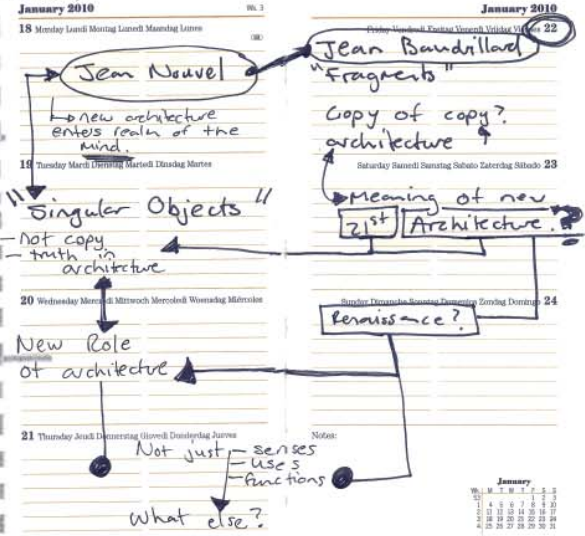 January 2010
Wk. 3
18 Monday Lundi Montag Lunedi Maandag Lunes
Jean Nouvel
new architecture
enters realm of the
mind.
19 Tuesday Mardi Dienstag Martedi Dinsdag Martes
"Singular Objects"
- not copy
- truth in
architecture
20 Wednesday Mercredi Mittwoch Mercoledi Woensdag Miércoles
New Role
of architecture
21 Thursday Jeudi Donnerstag Giovedi Donderdag Jueves
Not just - senses
- uses
- functions
What else?
January 2010
Friday Vendredi Freitag Venerdi Vrijdag Viernes 22
Jean Baudrillard
"Fragments"
Copy of copy?
architecture
Saturday Samedi Samstag Sabato Zaterdag Sábado 23
Meaning of new
21st Architecture.?
Sunday Dimanche Sonntag Domenica Zondag Domingo 24
Renaissance?
Notes:
January
Wk. M T W T F S S
53 1 2 3
1 4 5 6 7 8 9 10
2 11 12 13 14 15 16 17
3 18 19 20 21 22 23 24
4 25 26 27 28 29 30 31